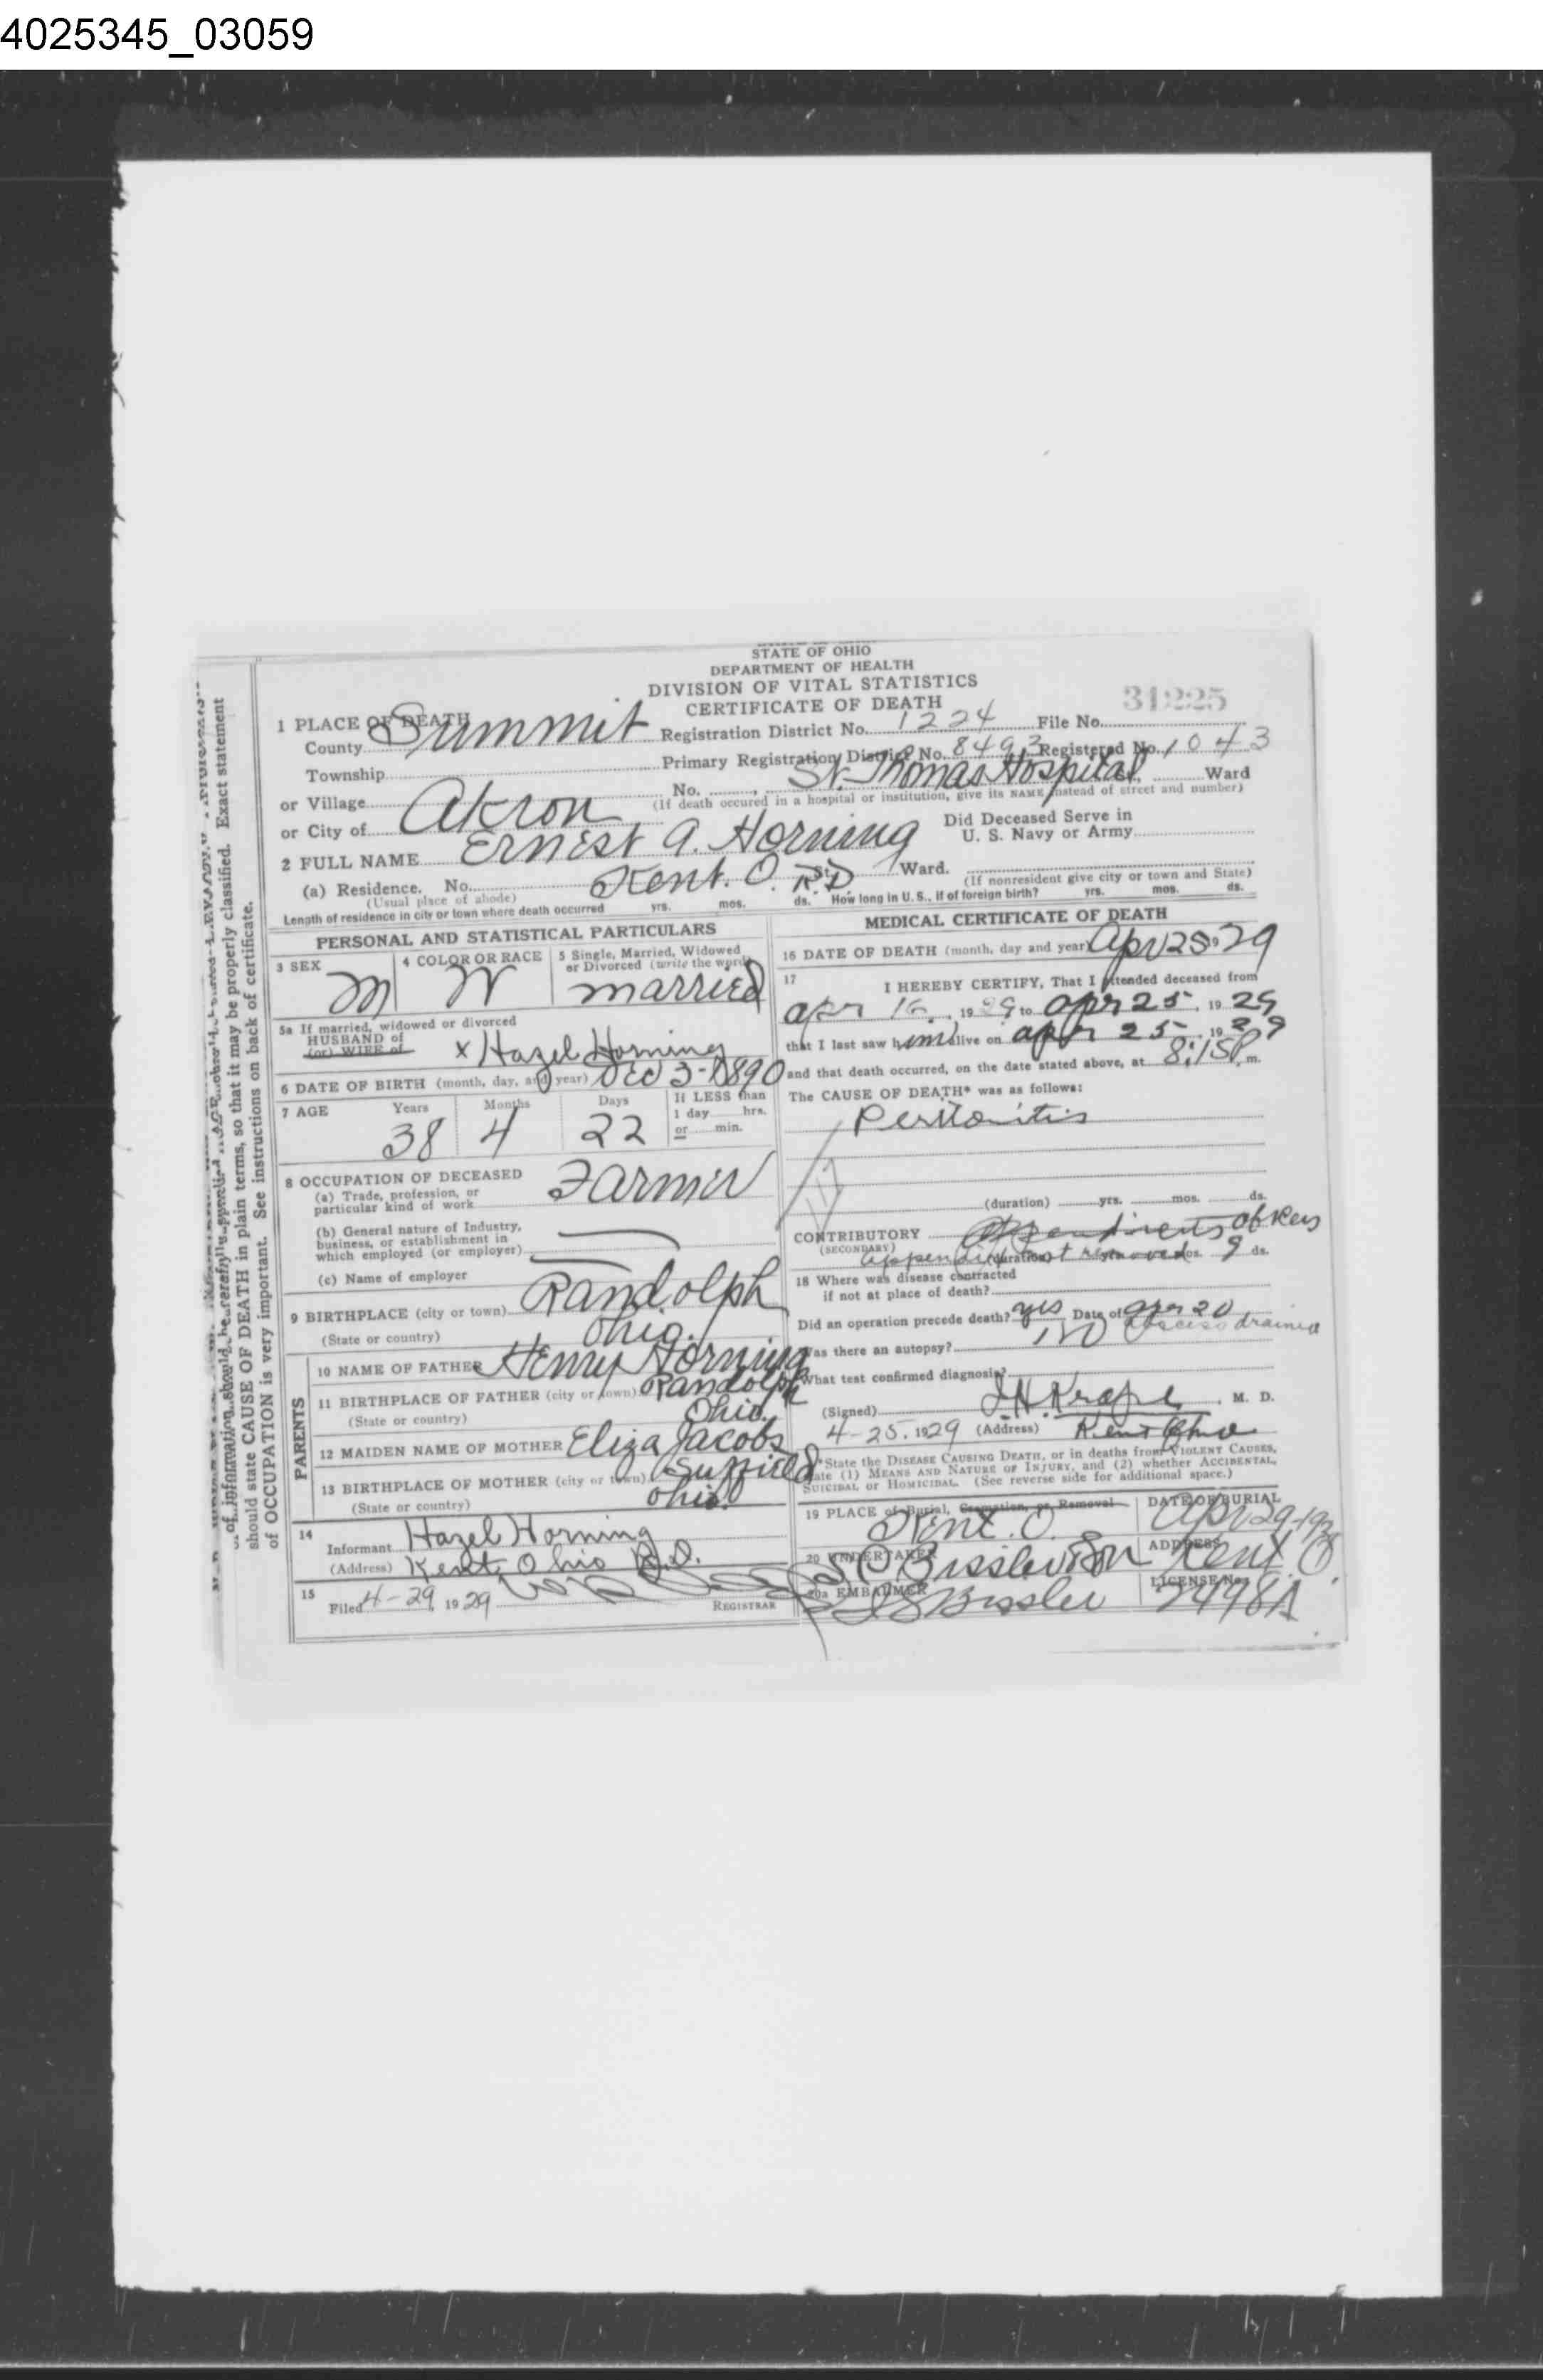 4025345_03059
STATE OF OHIO
DEPARTMENT OF HEALTH
DIVISION OF VITAL STATISTICS
CERTIFICATE OF DEATH
31225
1 PLACE OF DEATH
County Summit Registration District No. 1224 File No.
Township Primary Registration District No. 8493 Registered No. 1043
or Village No. St. Thomas Hospital Ward
(If death occured in a hospital or institution, give its NAME instead of street and number)
or City of Akron
Did Deceased Serve in
U. S. Navy or Army
2 FULL NAME Ernest A. Horning
(a) Residence. No. Kent. O. R.D. St. Ward.
(Usual place of abode) (If nonresident give city or town and State)
Length of residence in city or town where death occurred yrs. mos. ds. How long in U. S., if of foreign birth? yrs. mos. ds.
PERSONAL AND STATISTICAL PARTICULARS
3 SEX M
4 COLOR OR RACE W
5 Single, Married, Widowed
or Divorced (write the word)
married
5a If married, widowed or divorced
HUSBAND of
(or) WIFE of
x Hazel Horning
6 DATE OF BIRTH (month, day, and year) Dec 3-1890
7 AGE Years Months Days If LESS than
1 day hrs.
or min.
38 4 22
8 OCCUPATION OF DECEASED
(a) Trade, profession, or
particular kind of work Farmer
(b) General nature of Industry,
business, or establishment in
which employed (or employer)
(c) Name of employer
9 BIRTHPLACE (city or town) Randolph
(State or country) Ohio.
PARENTS
10 NAME OF FATHER Henry Horning
11 BIRTHPLACE OF FATHER (city or town) Randolph
(State or country) Ohio.
12 MAIDEN NAME OF MOTHER Eliza Jacobs
13 BIRTHPLACE OF MOTHER (city or town) Suffield
(State or country) Ohio.
14
Informant Hazel Horning
(Address) Kent, Ohio R.D.
15
Filed 4-29, 1929
REGISTRAR
MEDICAL CERTIFICATE OF DEATH
16 DATE OF DEATH (month, day and year) Apr 25 1929
17 I HEREBY CERTIFY, That I attended deceased from
apr 16, 1929 to apr 25, 1929
that I last saw him alive on apr 25, 1929
and that death occurred, on the date stated above, at 8:15 P. m.
The CAUSE OF DEATH* was as follows:
Peritonitis
(duration) yrs. mos. ds.
CONTRIBUTORY
(SECONDARY)
appendix not removed
(duration) yrs. mos. 9 ds.
18 Where was disease contracted
if not at place of death?
Did an operation precede death? yes Date of apr 20
abscess drained
Was there an autopsy? no
What test confirmed diagnosis?
(Signed) M. D.
4-25, 1929 (Address) Kent Ohio
*State the DISEASE CAUSING DEATH, or in deaths from VIOLENT CAUSES,
state (1) MEANS AND NATURE OF INJURY, and (2) whether ACCIDENTAL,
SUICIDAL or HOMICIDAL. (See reverse side for additional space.)
19 PLACE of Burial, Cremation, or Removal DATE OF BURIAL
Kent. O. Apr 29-1929
20 UNDERTAKER ADDRESS
S C Bissler & Son Kent. O.
20a EMBALMER LICENSE No.
Bissler 2498A
of information should be carefully supplied.
should state CAUSE OF DEATH in plain terms, so that it may be properly classified. Exact statement
of OCCUPATION is very important. See instructions on back of certificate.